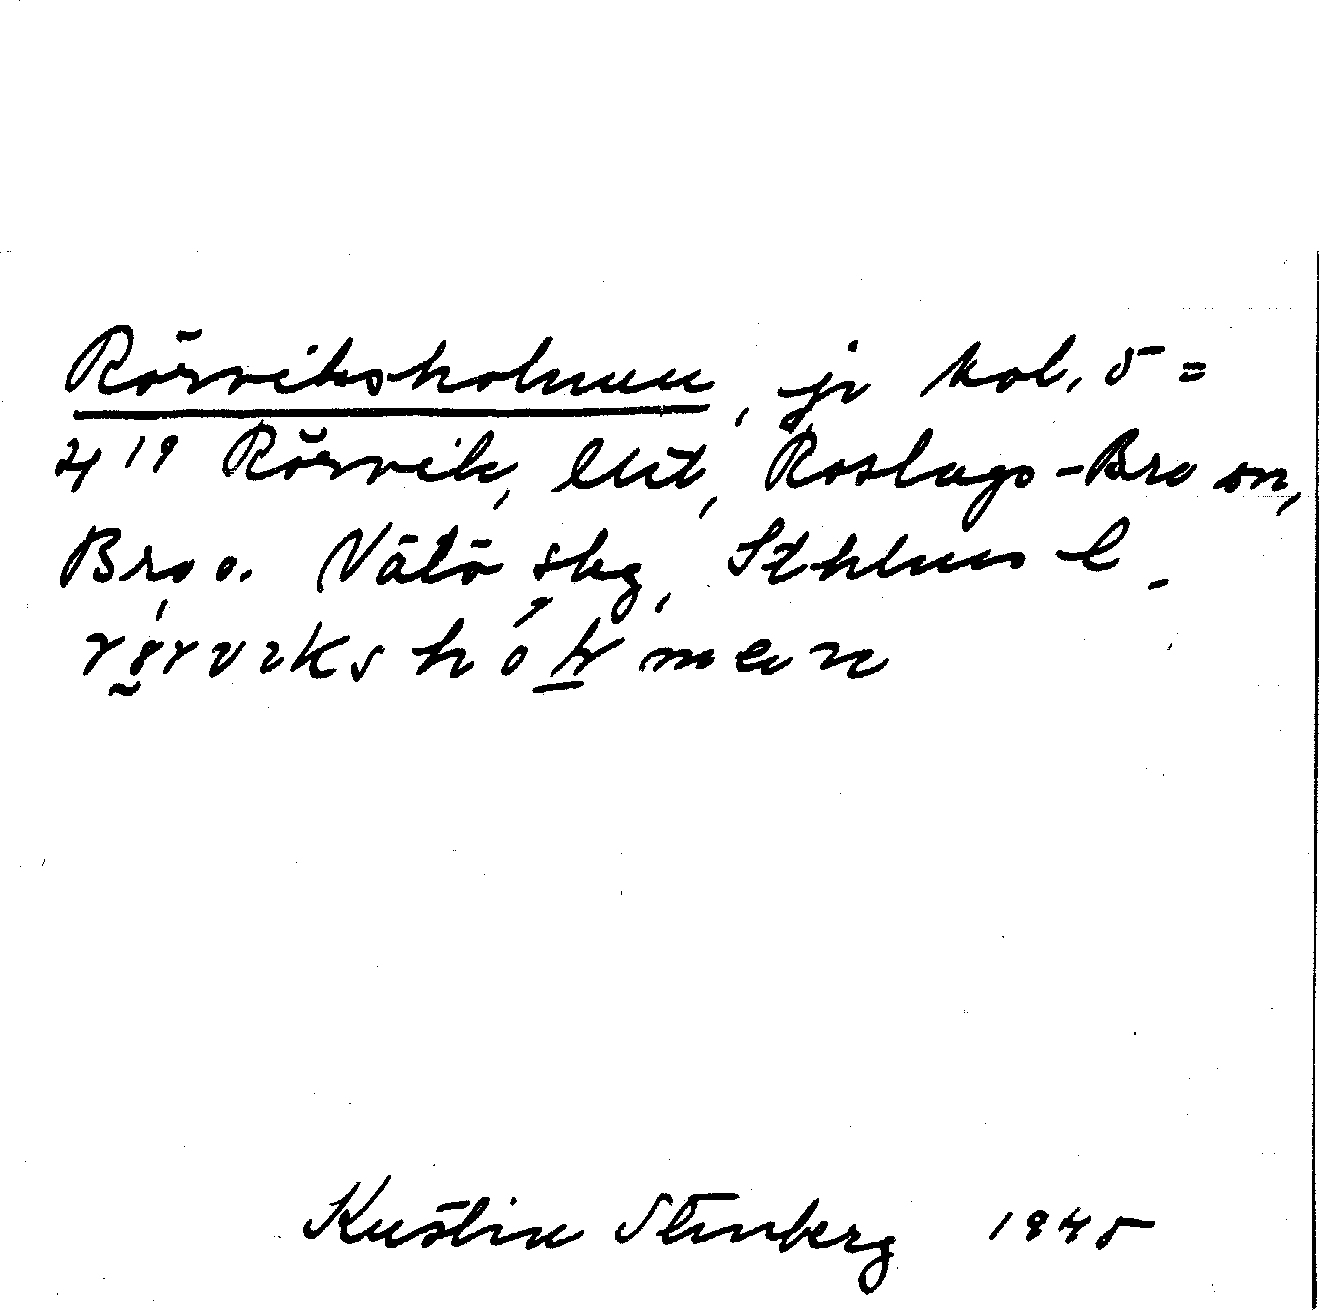 Rörviksholmen, jr kol. 5 =
4 19 Rörvik, Utl, Roslags-Bro sn,
Bro o. Vätö skg, Sthlms l.
rörvikshólmen
Kerstin Stenberg 1945